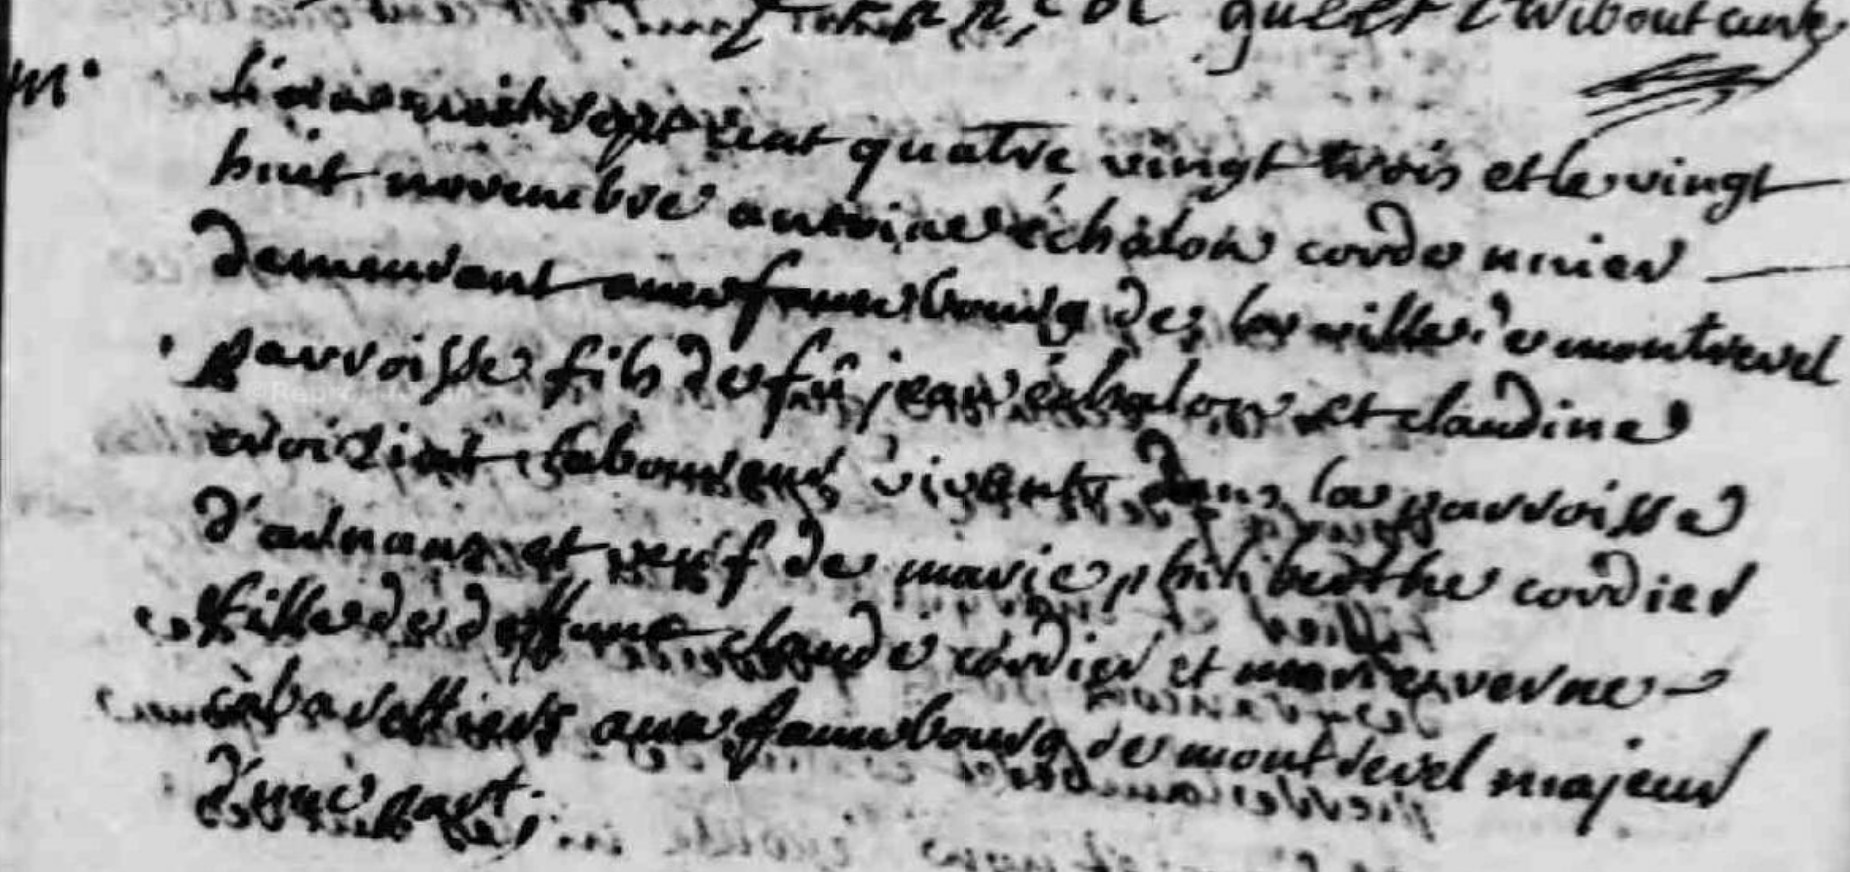 Wibout curé
M.
L'an mil sept cent quatre vingt trois et le vingt
huit novembre antoine échalon cordonnier
demeurant au faubourg de la ville de montrevel
parroisse fils de fû jean échalon et claudine
voisin laboureurs vivants dans la parroisse
et veuf de marie philiberthe cordier
fille de deffunt claude cordier et verne
cabarettiers aux fauxbourg de montrevel majeur
d'une part;